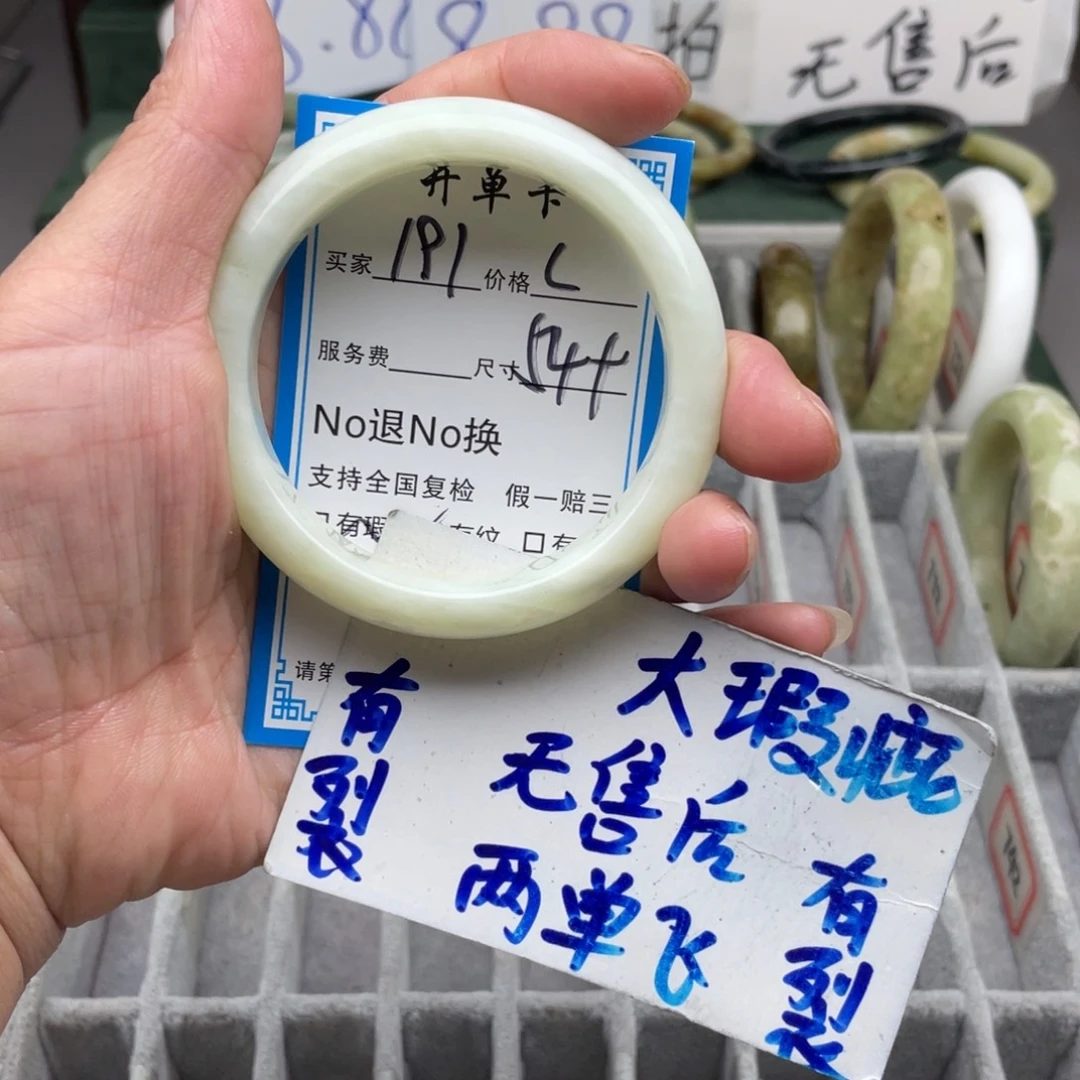 8.88
8.88
拍
无售后
开单卡
买家 191 价格 L
服务费 尺寸 544
No退No换
支持全国复检 假一赔三
有瑕 有纹 口有
请第
大瑕疵
无售后
两单飞
有裂
有裂